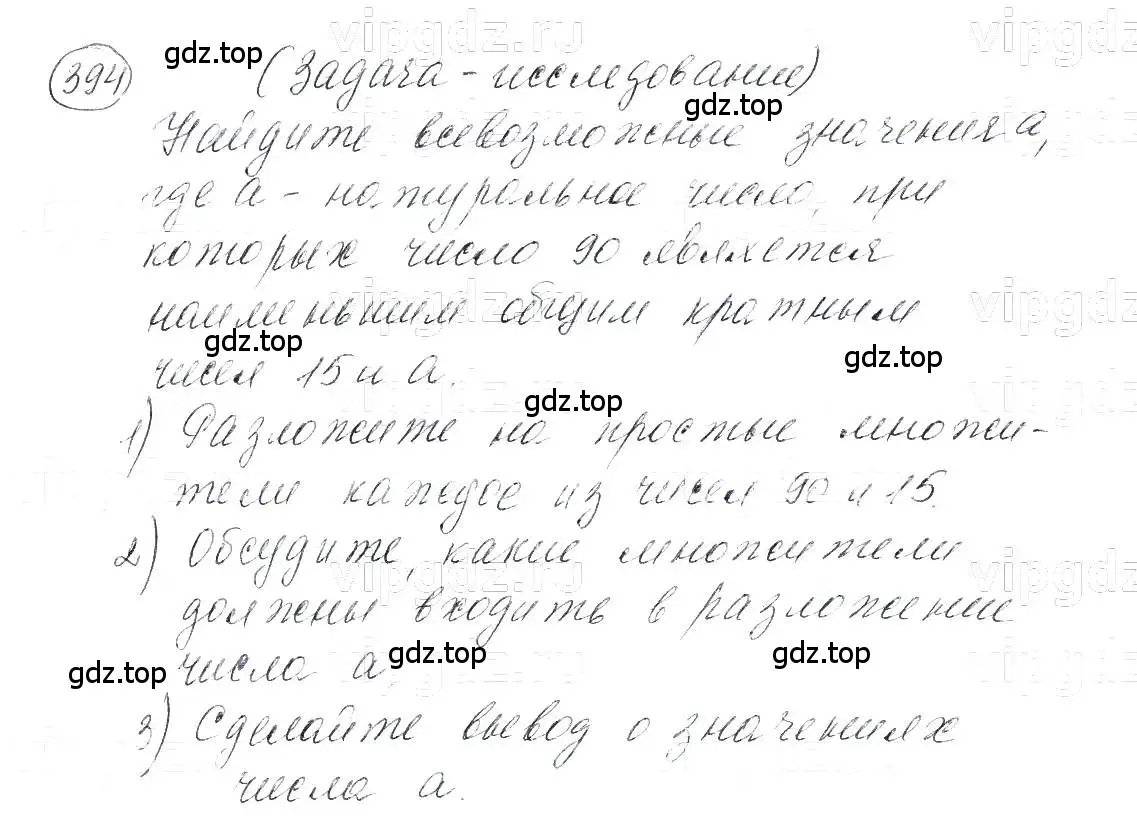 394 (Задача - исследование)
Найдите всевозможные значения a,
где a - натуральное число, при
которых число 90 является
наименьшим общим кратным
чисел 15 и a.
1) Разложите на простые множи-
тели каждое из чисел 90 и 15.
2) Обсудите, какие множители
должны входить в разложении
числа a.
3) Сделайте вывод о значениях
числа a.
gdz.top
gdz.top
gdz.top
gdz.top
gdz.top
gdz.top
gdz.top
gdz.top
vipgdz.ru
vipgdz.ru
vipgdz.ru
vipgdz.ru
vipgdz.ru
vipgdz.ru